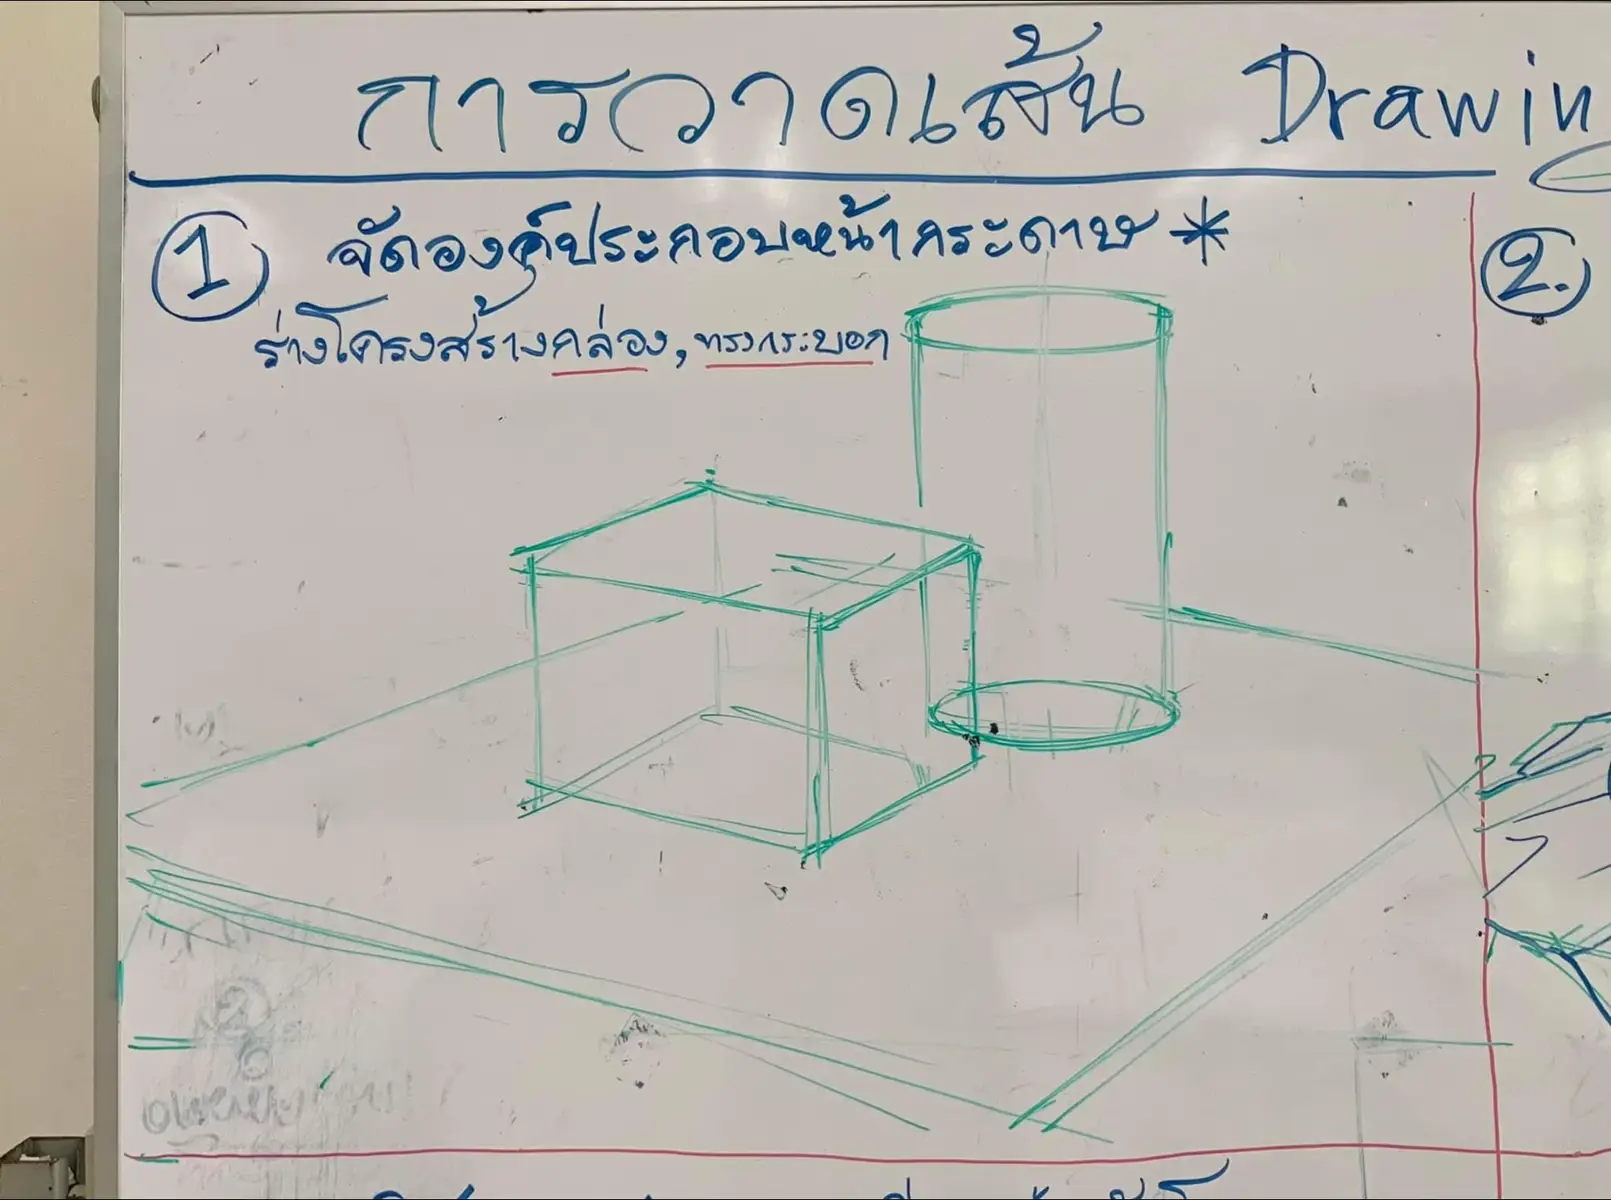 การวาดเส้น Drawin
1 จัดองค์ประกอบหน้ากระดาษ *
ร่างโครงสร้างกล่อง, ทรงกระบอก
2.